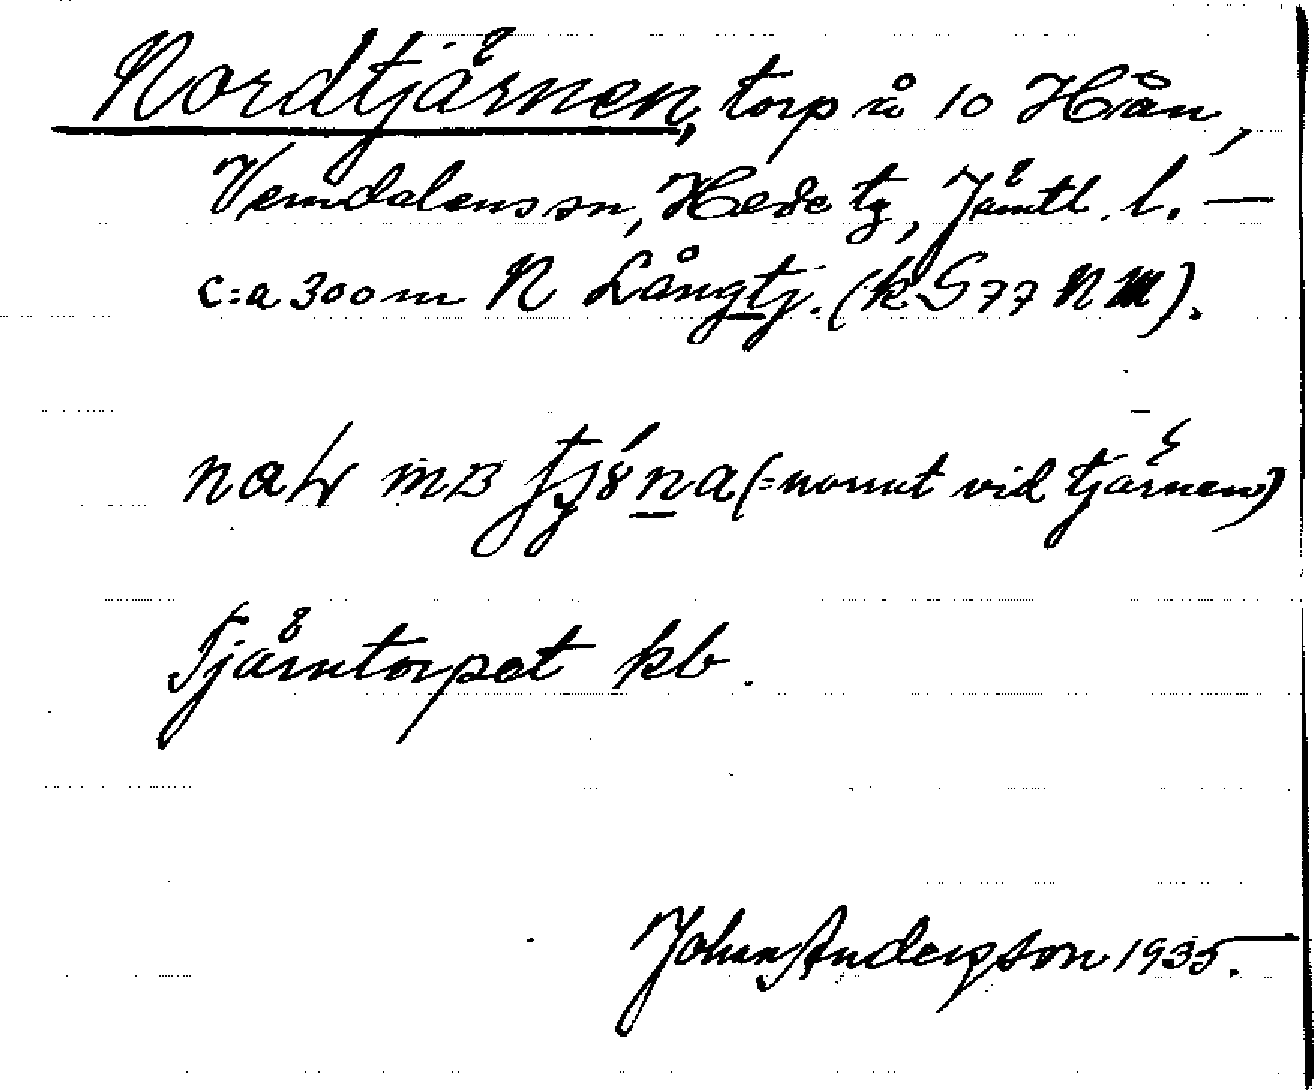 Nordtjärnen, torp å 10 Hån,
Vemdalens sn, Hede tg, Jämtl. l. —
c:a 300 m N Långtj. (k S 77 N M).
(= norrut vid tjärnen)
Tjärntorpet kb.
Johan Andersson 1935.